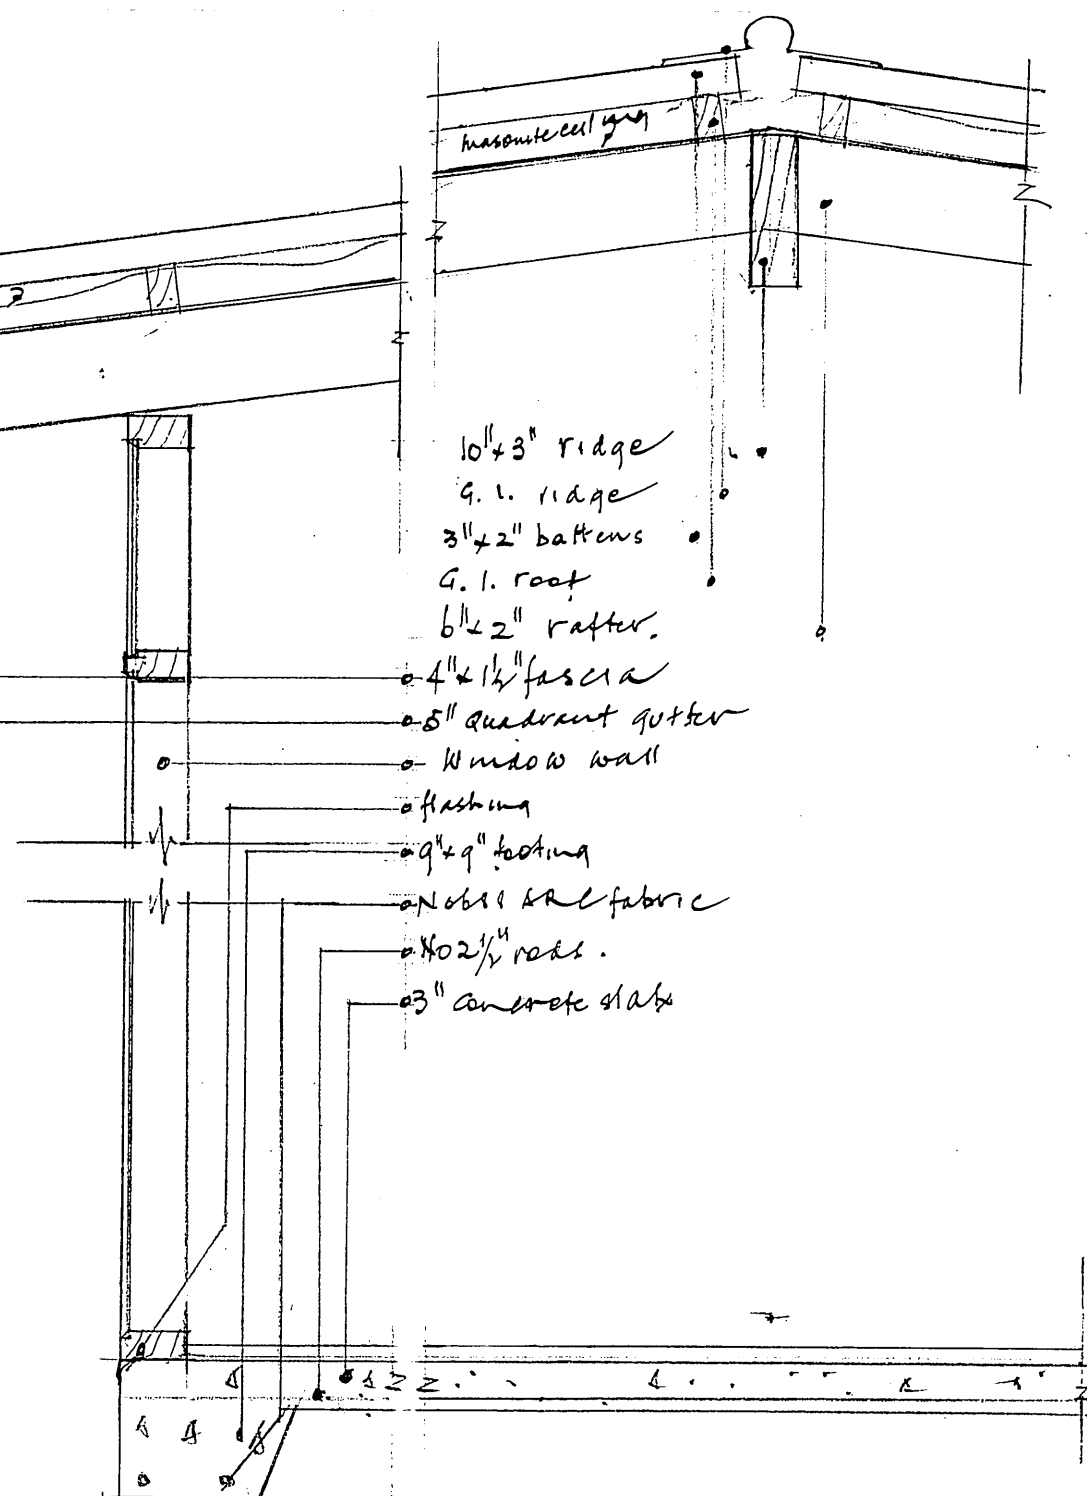 masonite ceiling
10"x3" ridge
G. I. ridge
3"x2" battens
G. I. roof
6"x2" rafter.
4"x1½" fascia
5" Quadrant gutter
Window wall
flashing
9"x9" footing
ARC fabric
No 2 ½" rods.
3" concrete slab